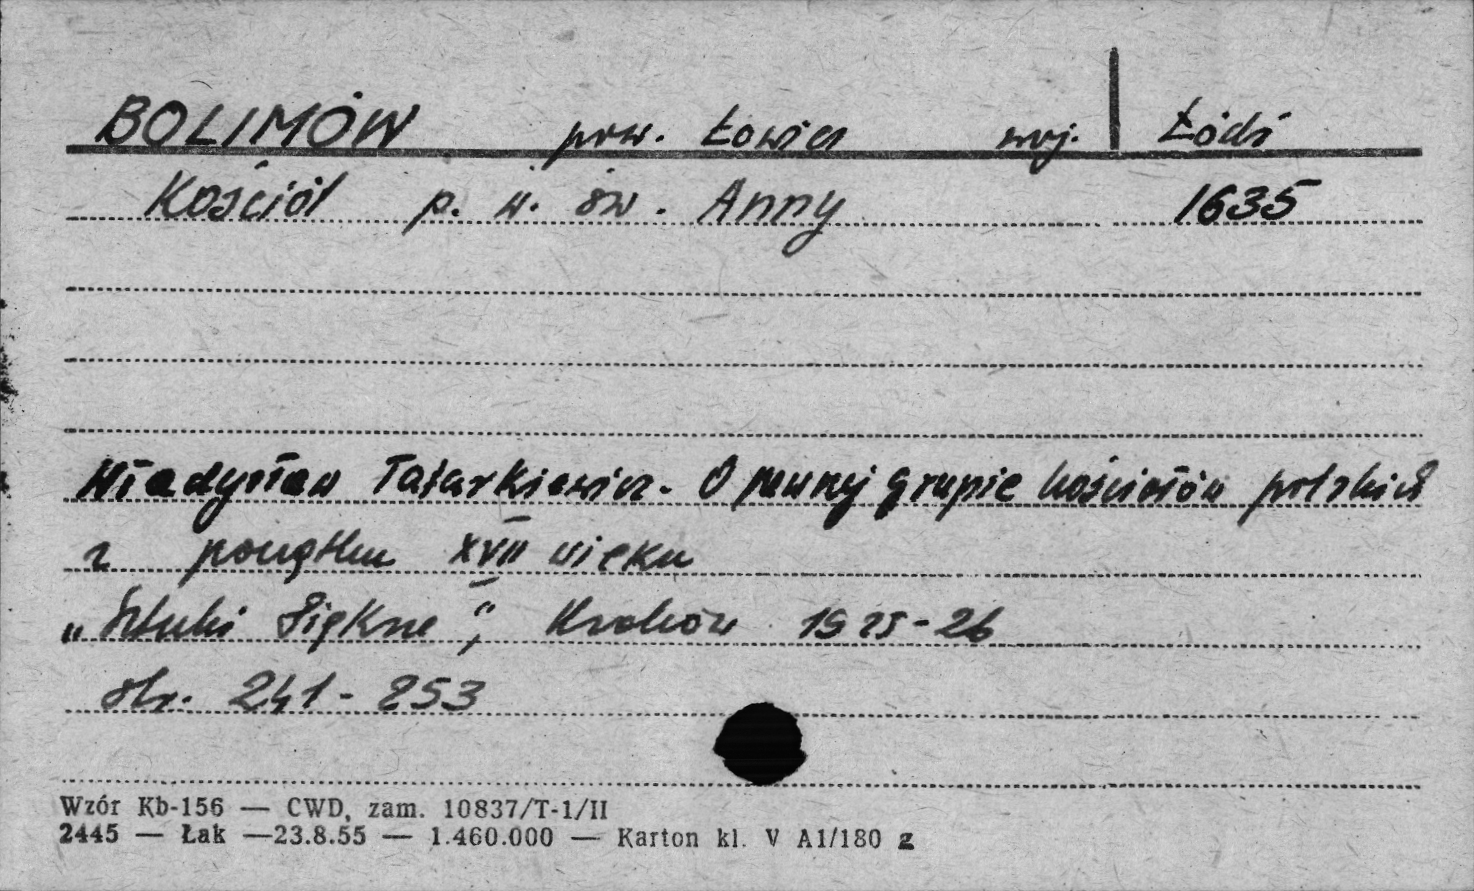 BOLIMÓW pow. Łowicz woj. Łódź
Kościół p. w. św. Anny 1635
Władysław Tatarkiewicz. O pewnej grupie kościołów polskich
z początku XVII wieku
„Sztuki Piękne", Kraków 1925-26
str. 241-253
Wzór Kb-156 — CWD, zam. 10837/T-1/II
2445 — Łak —23.8.55 — 1.460.000 — Karton kl. V A1/180 g